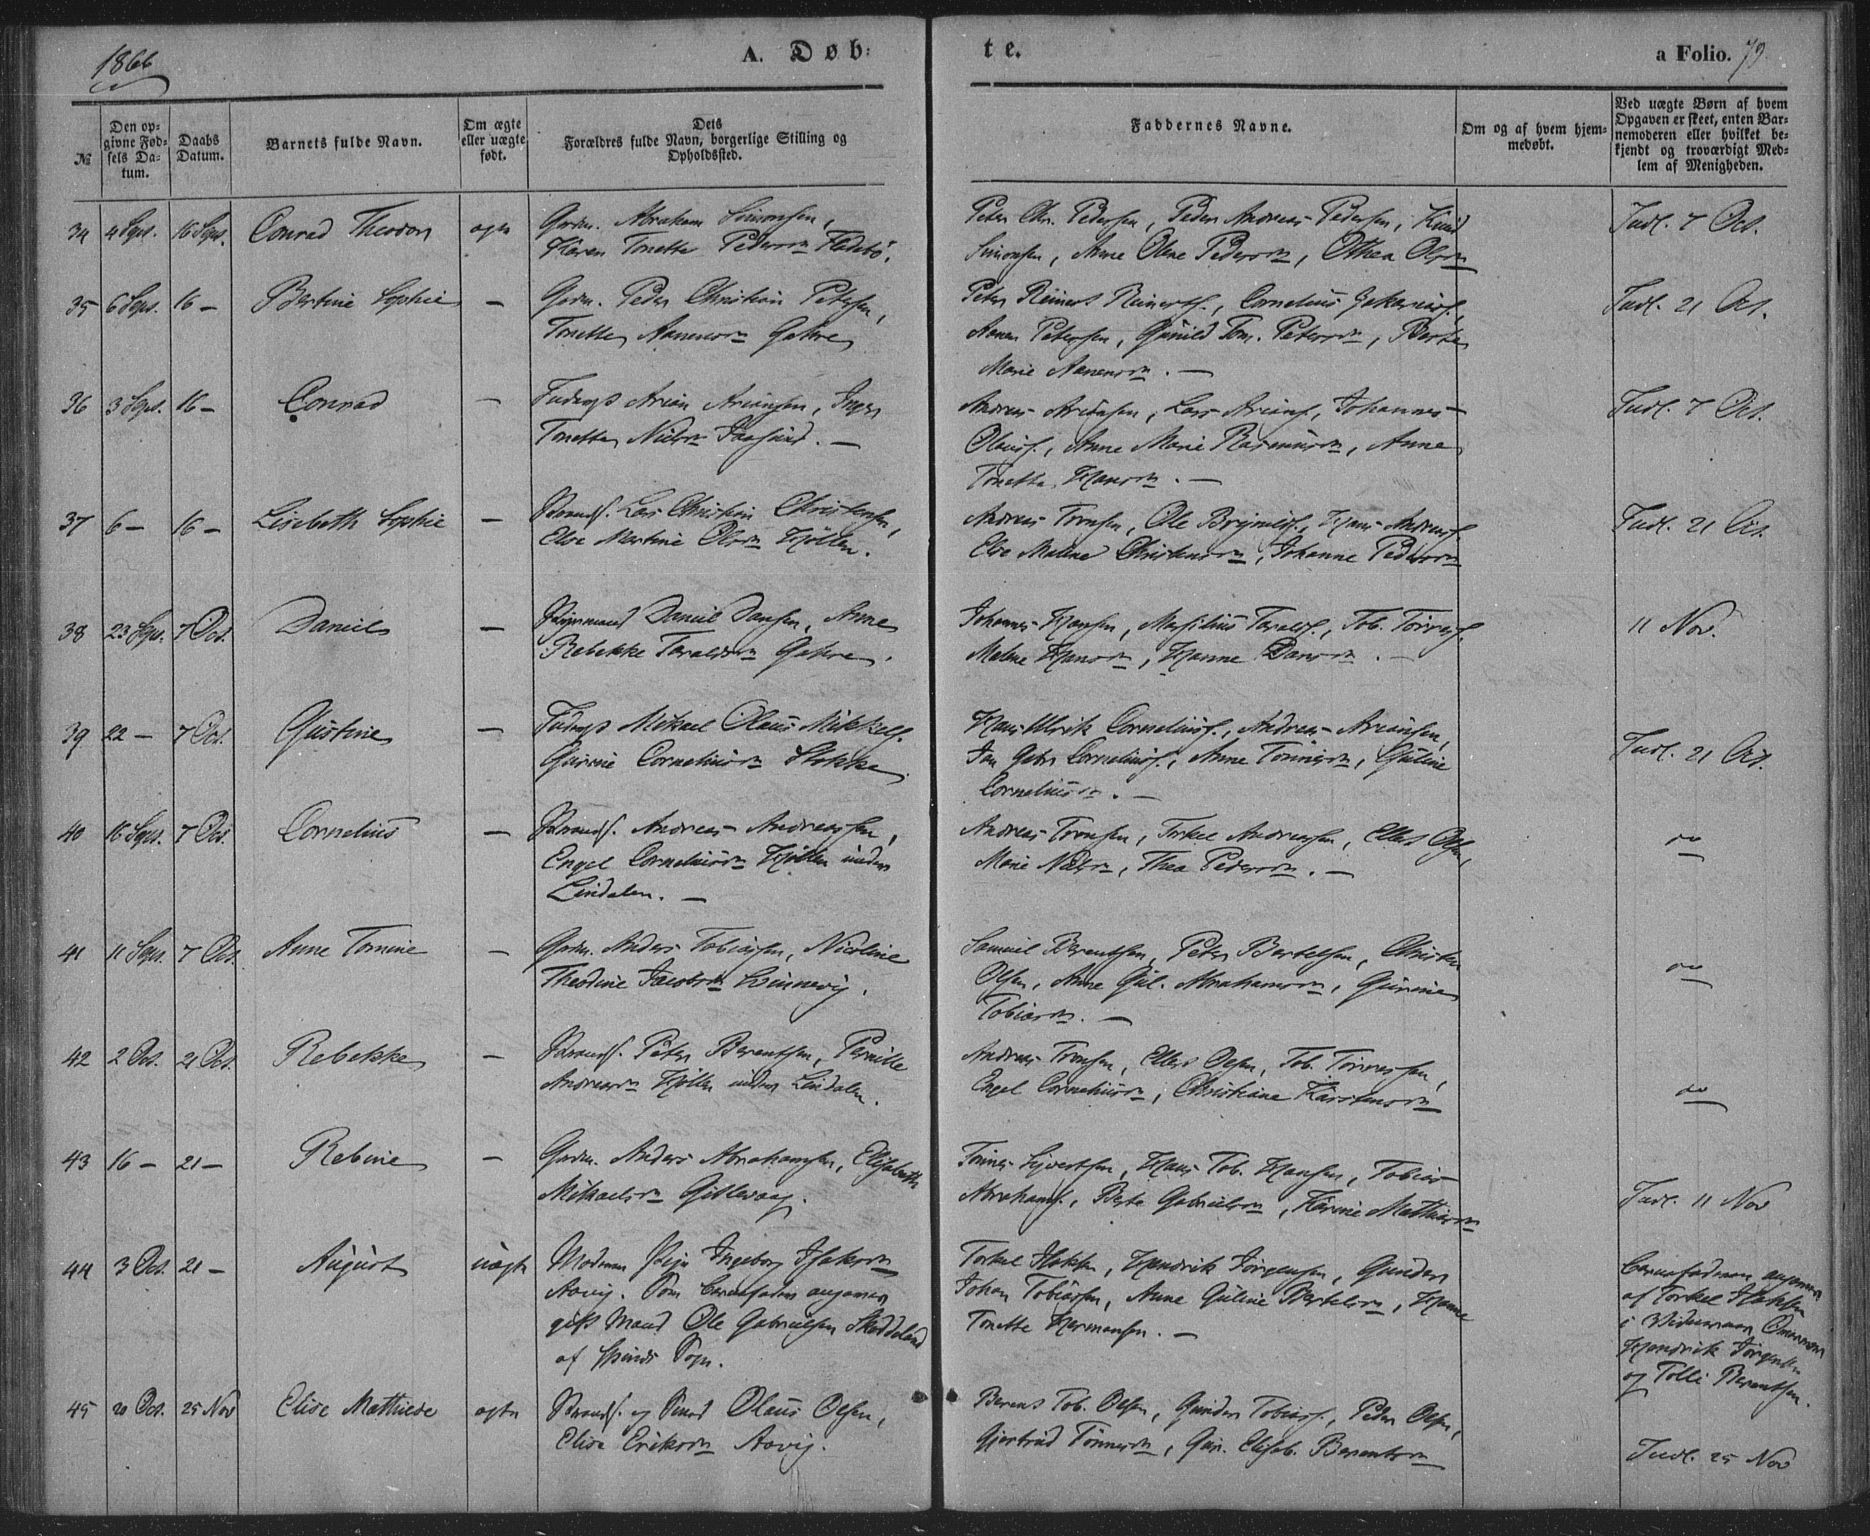 1866
A. Døb:
te.
a Folio. 79.
№
Den op-
givne Fød-
sels Da-
tum.
Daabs
Datum.
Barnets fulde Navn.
Om ægte
eller uægte
født.
Dets
Forældres fulde Navn, borgerlige Stilling og
Opholdssted.
Faddernes Navne.
Om og af hvem hjem-
medøbt.
Ved uægte Børn af hvem
Opgaven er skeet, enten Bar-
nemoderen eller hvilket be-
kjendt og troværdigt Med-
lem af Menigheden.
34 4 Sept. 16 Sept. Conrad Theodor ægte Grdm. Abraham Simonsen,
Karen Tonette Pedersn
Peter Chr. Pedersen, Peder Andreas Pedersen, Knud
Simonsen, Anne Olene Pedersn, Othea Olsn
Indl. 7 Oct.
35 6 Sept. 16 — Bertine Sophie — Grdm. Peder Christian Petersen,
Tonette Aanensn Gahre
Peter Reinert Reinerts., Cornelius Zakarias.,
Aanen Petersen, Gunild Tom. Petersn, Berte
Marie Aanensn. —
Indl. 21 Oct.
36 3 Sept. 16 — Conrad — Inderst Arian Ariansen, Inger
Tonette Nielsn —
Andreas Ariansen, Lars Arians., Johannes
Olaus., Anne Marie Rasmusn, Anne
Tonette Hansn. —
Indl. 7 Oct.
37 6 — 16 — Lisebeth Sophie — Strands. Lars Christian Christensen,
Elve Martine Olsn Hjöllen.
Andreas Tronsen, Ole, Hans Andreas.
Elve Malene Christensn, Johanne Pedersn
Indl. 21 Oct.
38 23 Sept. 7 Oct. Daniel — Daniel Dansen, Anne
Rebekke Taraldsn Gahre.
Johannes Hansen, Taralds., Tob. Tönnes.
Malene Hansn, Hanne Dansn. —
11 Nov.
39 22 — 7 Oct. Gustine — Inderst Mikael Olaus Mikkels.
Gurine Corneliusn Stokke
Hans Ulrik Cornelius., Andreas Ariansen,
Jan Gabr. Cornelius., Anne Tönnesn, Guline
Corneliusn. —
Indl. 21 Oct.
40 16 Sept. 7 Oct. Cornelius — Strands. Andreas Andreassen,
Engel Corneliusn Hjöllen under
Lindalen. —
Andreas Tronsen, Tirkel Andreassen, Ellert Olsen,
Marie Nielsn, Thea Pedersn. —
41 11 Sept. 7 Oct. Anne Tomine — Grdm. Anders Tobiassen, Nicoline
Theodine Jacobsn
Samuel Berentsen, Peter Bertelsen, Christen
Olsen, Anne Gul. Abrahamsn, Gurine
Tobiasn. —
42 2 Oct. 21 Oct. Rebekke — Strands. Peter Berentsen, Pernille
Andreasn Hjöllen under Lindalen.
Andreas Tronsen, Ellert Olsen, Tob. Tönnessen,
Engel Corneliusn, Christiane Karstensn
43 16 — 21 — Rebine — Grdm. Anders Abrahamsen, Elisabeth
Mikaelsn Gitlevaag.
Tönnes Syvertsen, Hans Tob. Hansen, Tobias
Abrahams., Berte Gabrielsn, Karine Mathiasn
Indl. 11 Nov
44 3 Oct. 21 — August uægte Moderen Pige Ingeborg Isaksn
Aavig. Som Barnefader angiven
gift Mand Ole Gabrielsen
af Spinds Sogn.
Torkel Isaksen, Hendrik Jörgensen, Gunder
Johan Tobiassen, Anne Guline Bertelsn, Hanne
Tonette Hermansen. —
Barnefaderen angiven
af Torkel Isaksen
i Vidneraad
Hendrik Jörgensen
og Tolli Berentsen.
45 20 Oct. 25 Nov Elise Mathilde ægte Strands. og Smed Olaus Olsen,
Elise Eriksn Aavig.
Berent Tob. Olsen, Gunder Tobias., Peder Olsen,
Gjertrud Tönnesn, Gur. Elisab. Berentsn
Indl. 25 Nov